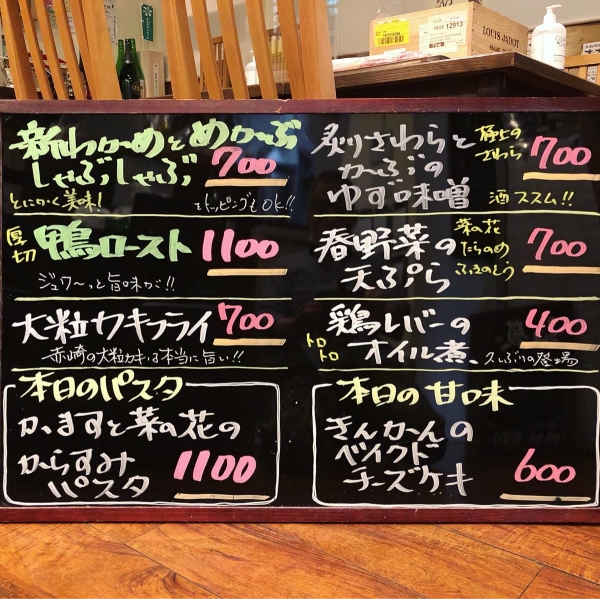 新わかめとめかぶ
しゃぶしゃぶ 700
とにかく美味!
トッピングもOK!!
厚切 鴨ロースト 1100
ジュワ〜っと旨味が!!
大粒カキフライ 700
赤崎の大粒カキは本当に旨い!!
本日のパスタ
かますと菜の花の
からすみ
パスタ 1100
炙りさわらと
かぶの
ゆず味噌
極上の
さわら
700
酒ススム!!
春野菜の
天ぷら
菜の花
たらのめ
ふきのとう
700
トロトロ
鶏レバーの
オイル煮
400
久しぶりの登場
本日の甘味
きんかんの
ベイクド
チーズケーキ
600
LOUIS JADOT
12913